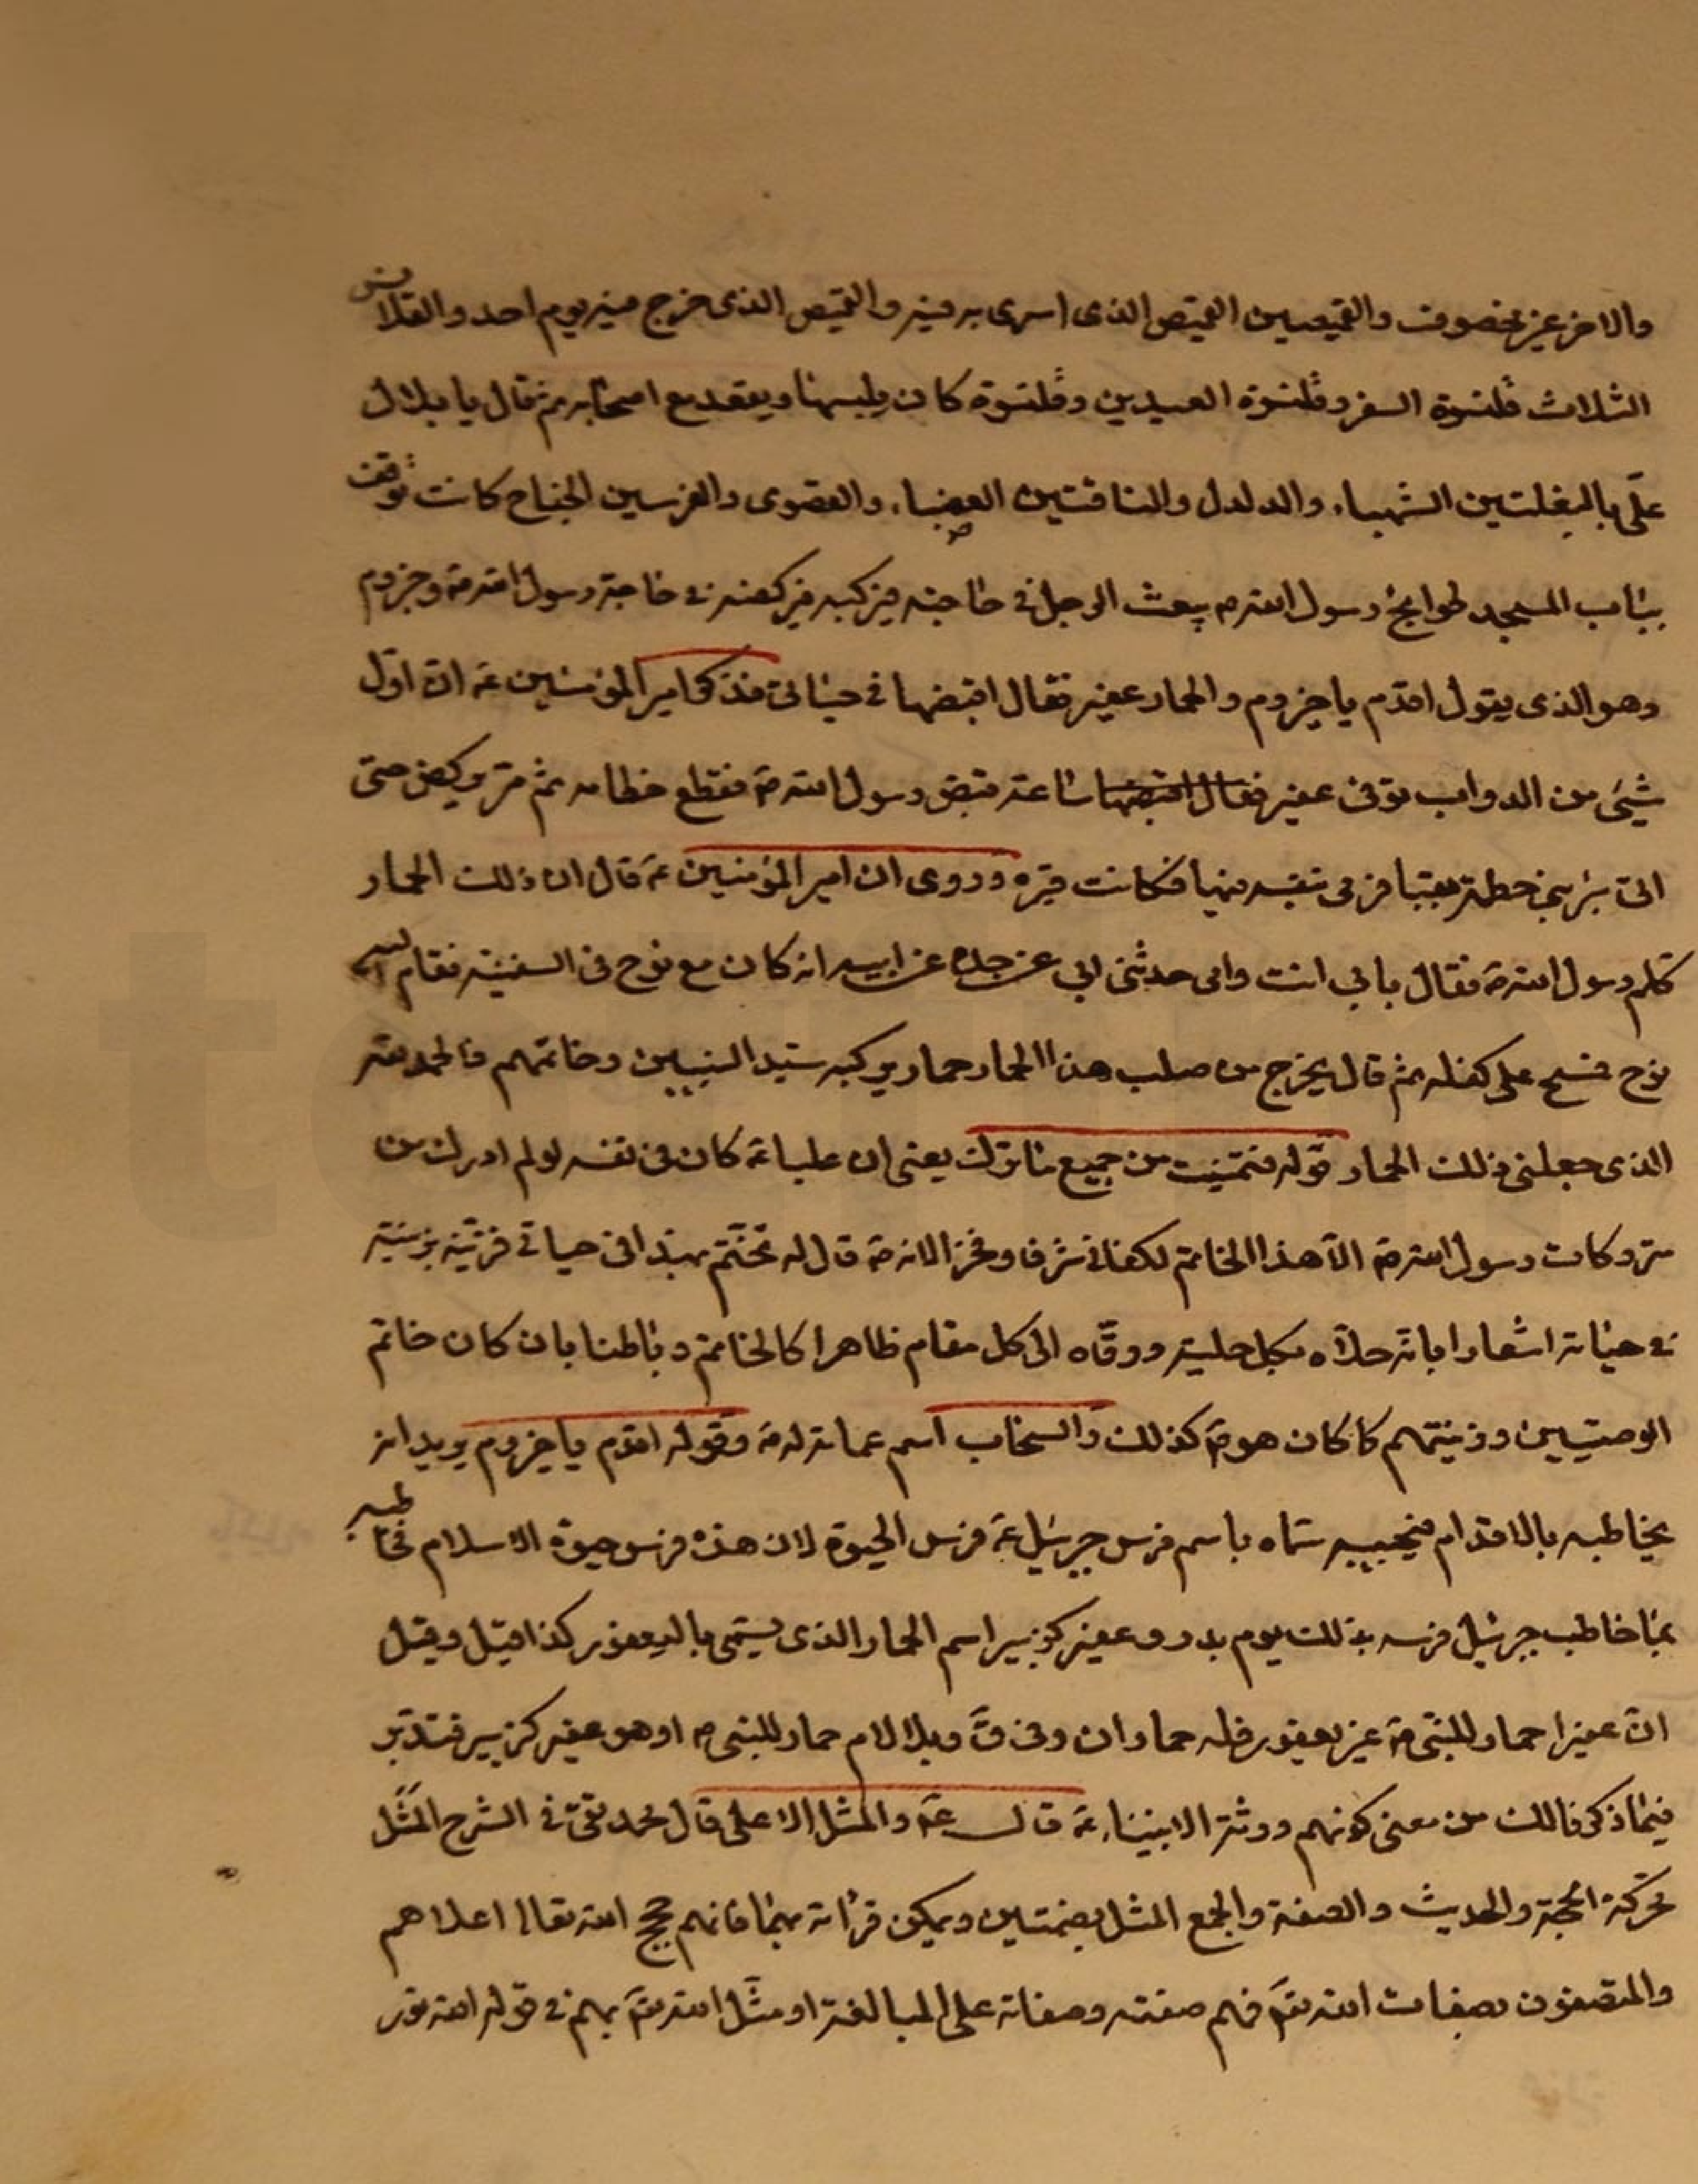 والاخر غير مخصوف والقميصين القميص الذى اسرى به فيه والقميص الذى خرج فيه يوم احد والقلانس
الثلاث قلنسوة السفر وقلنسوة العيدين وقلنسوة كان يلبسها ويقعد مع اصحابه ثم قال يا بلال
علّى بالبغلتين الشهباء والدلدل والناقتين العضباء والقصوى والفرسين الجناح كانت توقف
بباب المسجد لحوايج رسول الله ص يبعث الرجل فى حاجته فيركبه فيركضه فى حاجة رسول الله ص وحيزوم
وهو الذى يقول اقدم يا حيزوم والحمار عفير فقال اقبضها فى حياتى فذكر امير المؤمنين ع ان اوّل
شيئ من الدواب توفى عفير ساعة قبض رسول الله ص فقطع خطامه ثم مر يركض حتى
اتى بئر بنى خطمة بقبا فرمى نفسه فيها فكانت قبره وروى ان امير المؤمنين ع قال ان ذلك الحمار
كلم رسول الله ص فقال بابى انت وامى حدثنى ابى عن جده عن ابيه انه كان مع نوح فى السفينة فقام اليه
نوح فمسح على كفله ثم قال يخرج من صلب هذا الحمار حمار يركبه سيّد النبيين وخاتمهم فالحمد لله
الذى جعلنى ذلك الحمار قوله فتمنيت من جميع ما ترك يعنى ان عليا ع كان فى نفسه لو لم ادرك من
متروكات رسول الله ص الّا هذا الخاتم لكفانى شرفا وفخرا لانه ص قال له تختّم بهذا فى حياتى فزيّنه بزينته
فى حياته اشعارا بانّه حلّاه بكل حلية ورقّاه الى كل مقام ظاهرا كالخاتم وباطنا بان كان خاتم
الوصيّين وزينتهم كما كان هو ص كذلك والسحاب اسم عمامة له ص وقوله اقدم يا حيزوم يريد انه
يخاطبه بالاقدام فيجيبه سمّاه باسم فرس جبرئيل ع فرس الحيوة لان هذه فرس حيوة الاسلام فخاطبه
بما خاطب جبرئيل فرسه بذلك يوم بدر وعفير كزبير اسم الحمار الذى يسمّى باليعفور كذا قيل وقيل
انّ عفيرا حمار للنبّى ص غير يعفور فله حماران وفى ق وبلا لام حمار للنبى ص او هو عفير كزبير فتدبّر
فيما ذكرنا لك من معنى كونهم ورثة الانبياء ع قال ع والمثل الاعلى قال محمد تقى فى الشرح المثل
محركة الحجة والحديث والصفة والجمع المثل بضمتين ويمكن قرائته بهما فانهم حجج الله تعالى اعلاهم
والمتصفون بصفات الله تع فهم صفته وصفاته على المبالغة او مثّل الله تع بهم فى قوله الله نور